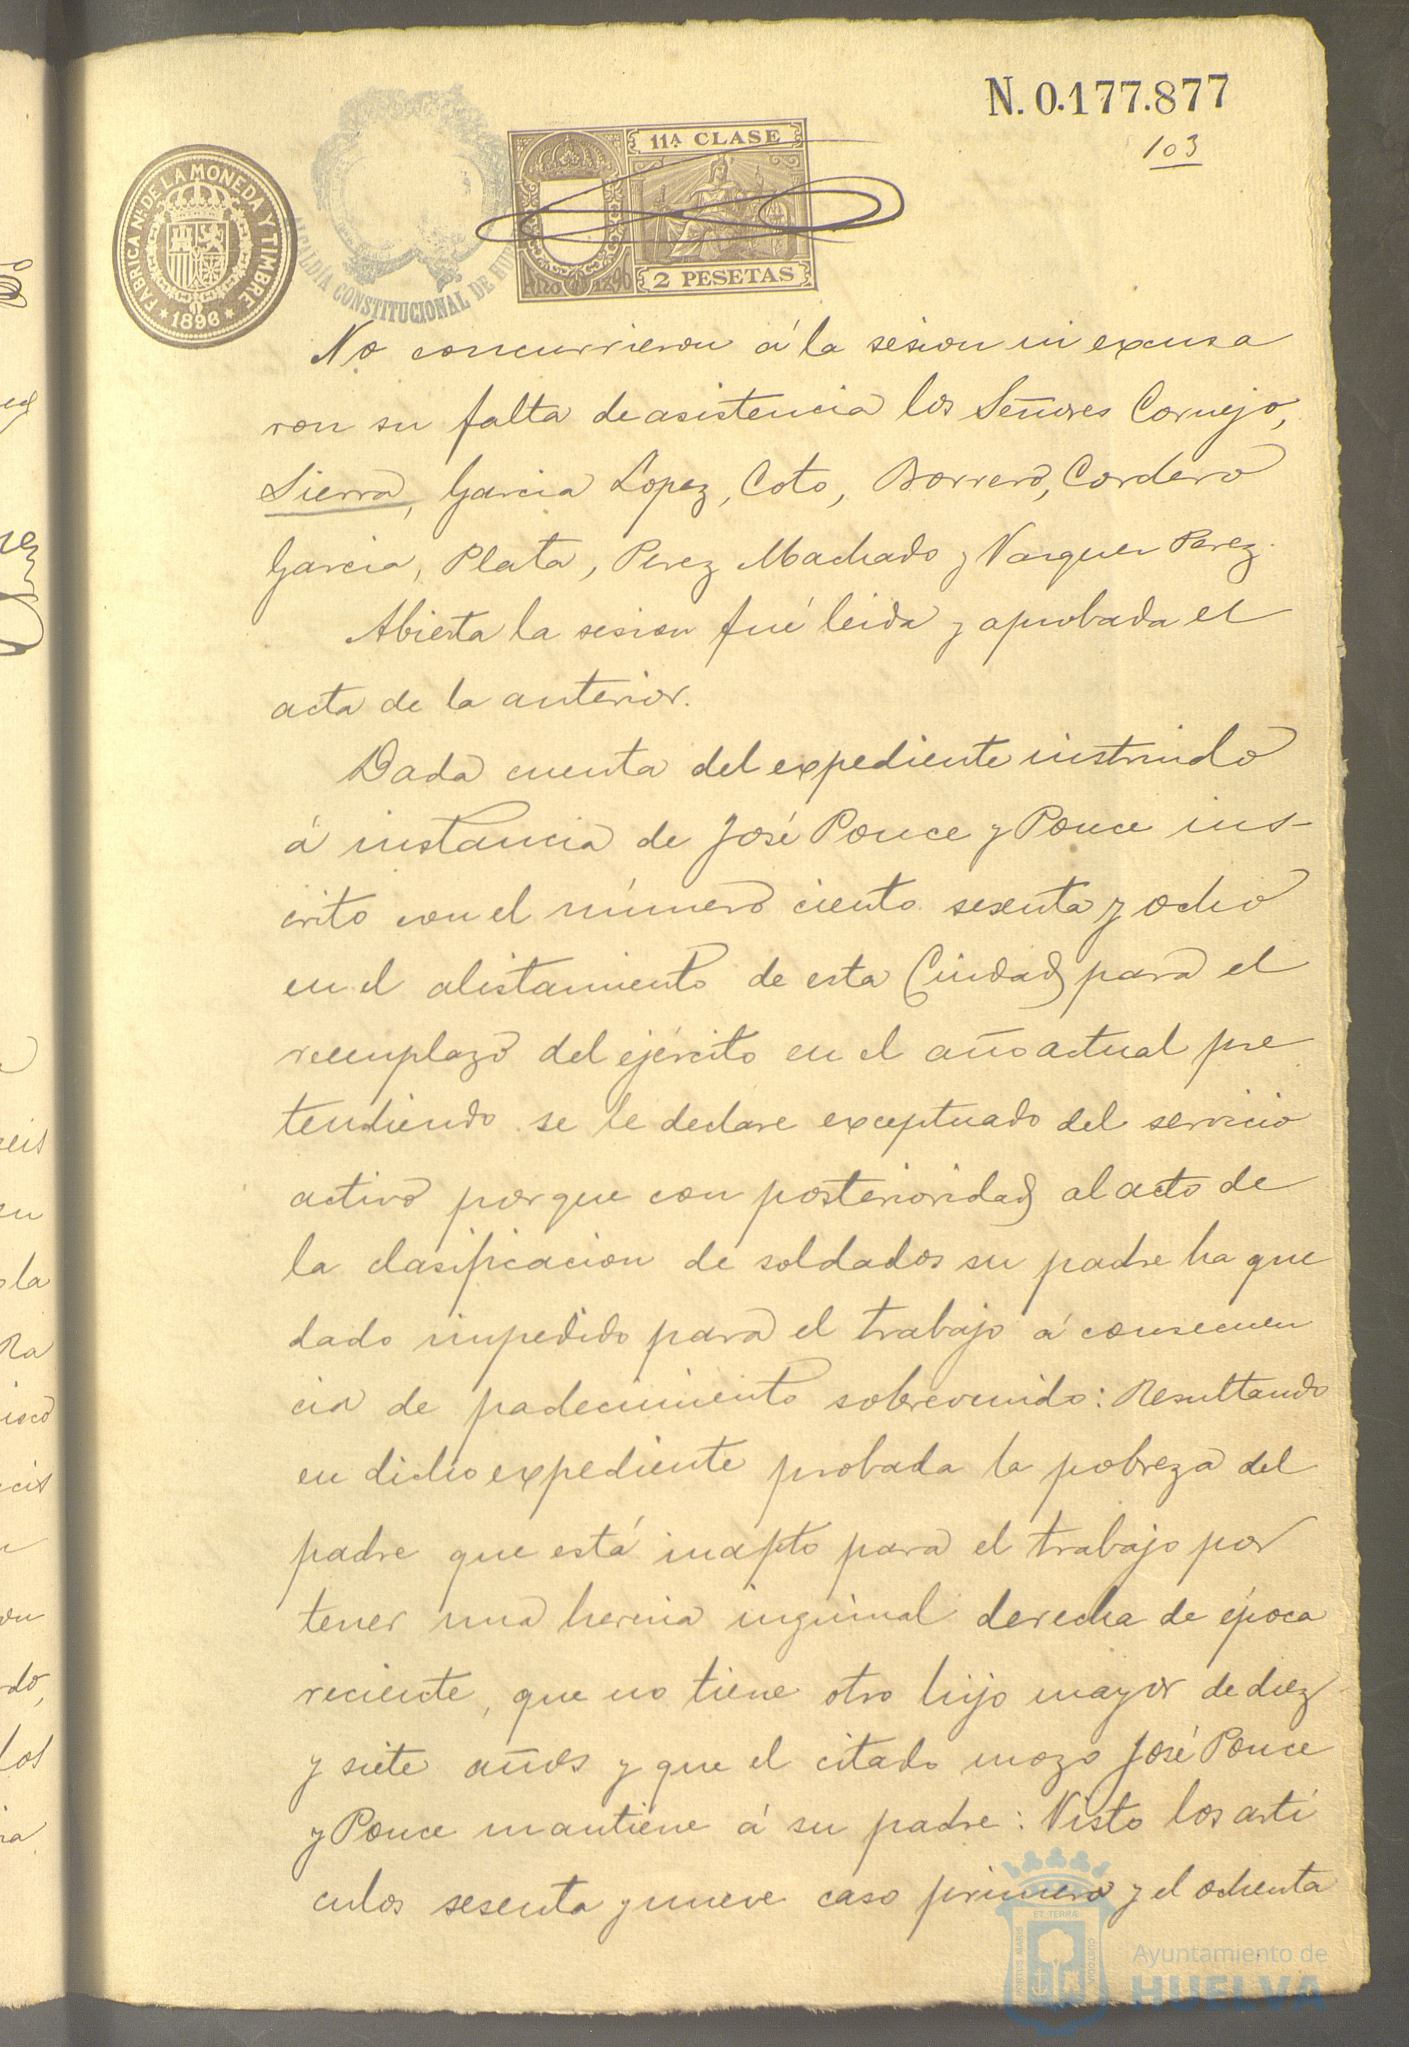 N. 0.177.877
103
FABRICA Nl. DE LA MONEDA Y TIMBRE
* 1896 *
ALCALDÍA CONSTITUCIONAL DE HUE
11ª CLASE
2 PESETAS
No concurrieron á la sesion ni excusa
ron su falta de asistencia los Señores Cornejo,
Sierra, Garcia Lopez, Coto, Borrero, Cordero
Garcia, Plata, Perez Machado y Vazquez Perez.
Abierta la sesion fué leida y aprobada el
acta de la anterior.
Dada cuenta del expediente instruido
á instancia de José Ponce y Ponce ins-
crito con el número ciento sesenta y ocho
en el alistamiento de esta Ciudad para el
reemplazo del ejército en el año actual pre
tendiendo se le declare exceptuado del servicio
activo porque con posterioridad al acto de
la clasificacion de soldados su padre ha que
dado impedido para el trabajo á consecuen
cia de padecimiento sobrevenido: Resultando
en dicho expediente probada la pobreza del
padre que está inapto para el trabajo por
tener una hernia inguinal derecha de época
reciente, que no tiene otro hijo mayor de diez
y siete años y que el citado mozo José Ponce
y Ponce mantiene á su padre: Visto los artí
culos sesenta y nueve caso primero y el ochenta
Ayuntamiento de
HUELVA